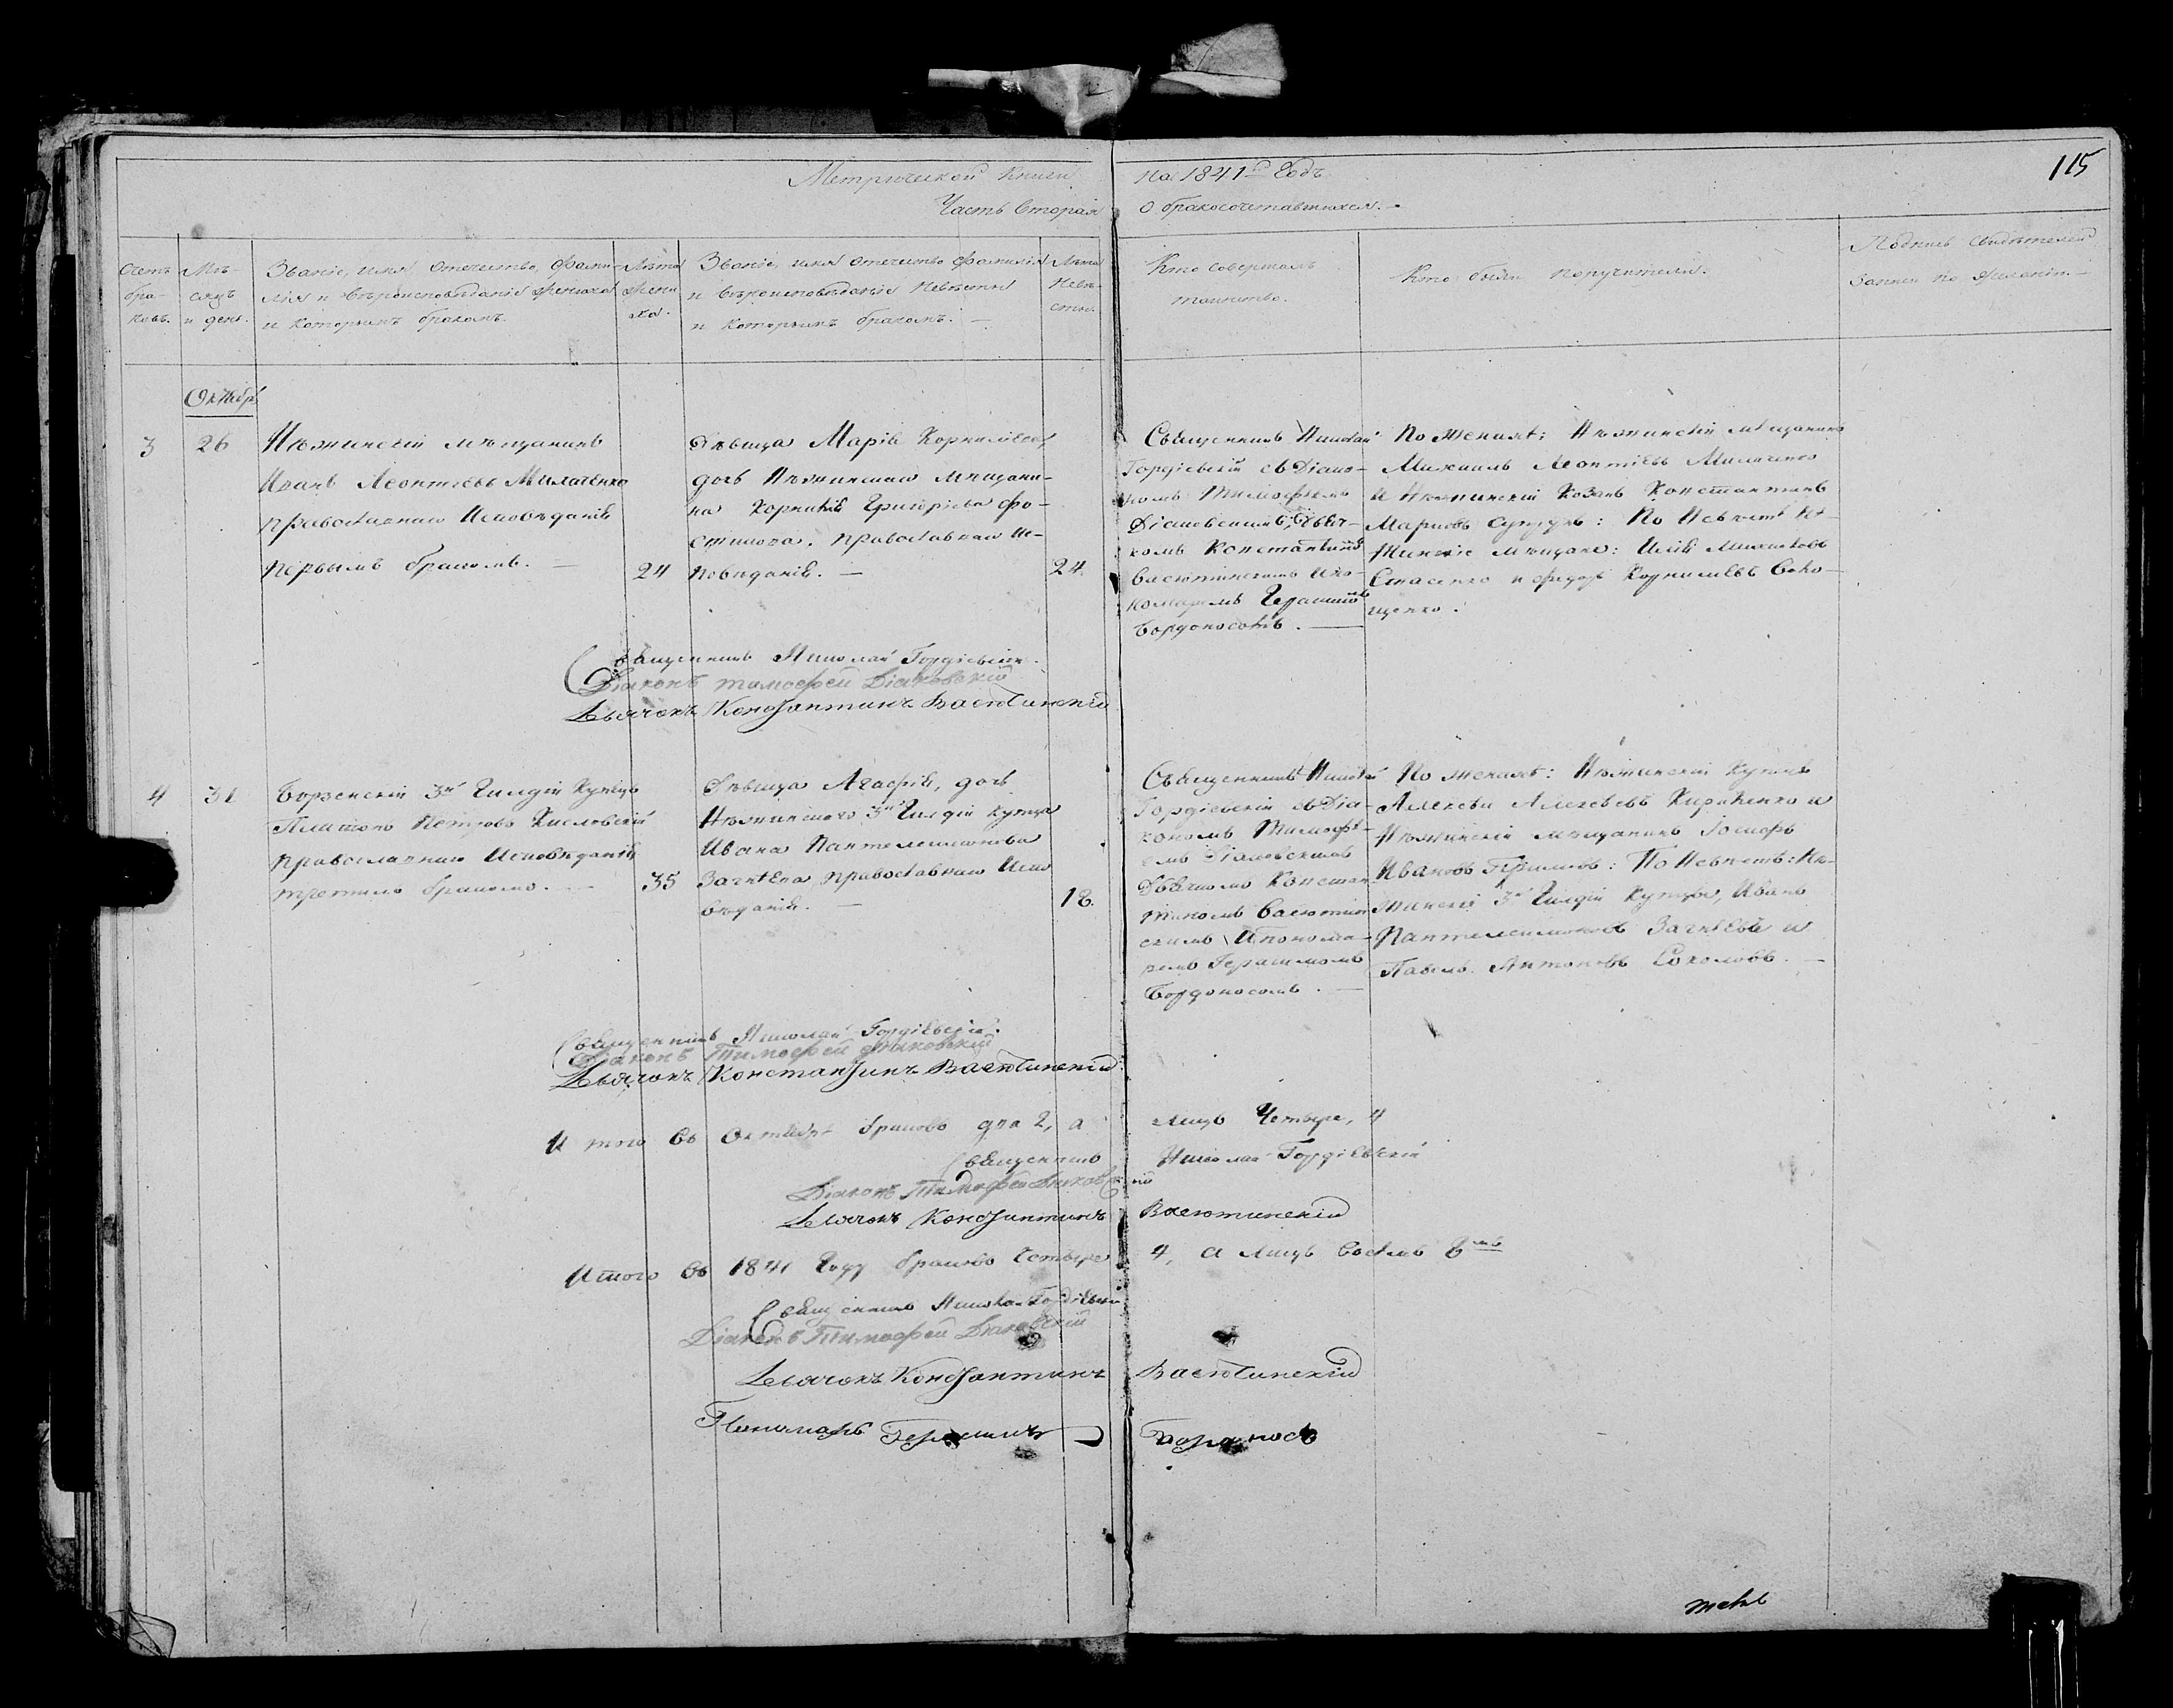 Метрической Книги
на 1841й Годъ.
115
Часть Вторая
О бракосочетавшихся.
Счетъ бра- ковъ.
Мѣ- сяцъ и день.
Званіе, имя, отечество, фами-
лія и вѣроисповѣданіе жениха
и которымъ бракомъ.
Лѣта жени ха.
Званіе, имя отечество фамилія
и вѣроисповѣданіе невѣсты
и которымъ бракомъ. —
Лѣта Невѣ- сты.
Кто совершалъ
таинство.
Кто были поручители.
Подпись свидѣтелей
записи по желанію. —
Октябрь
3
26
Нѣжинскій мѣщанинъ
Иванъ Леонтіевъ Милаченко
православнаго исповѣданія
первымъ бракомъ. —
24
Дѣвица Марія Корниліева,
дочь Нѣжинскаго мѣщани-
на Корнилія Григоріева
православнаго ис-
повѣданія. —
24.
Священникъ Николай
Гордіевскій съ Діако-
номъ Тимофѣемъ
Діаковскимъ, дьяч-
комъ Константиномъ
Васютинскимъ и по-
номаремъ Герасимомъ
Бордоносомъ. —
По женихѣ: Нѣжинскій мѣщанинъ
Михаилъ Леонтіевъ Милаченко
и Нѣжинскій Козакъ Константинъ
Марковъ : По Невѣстѣ Нѣ-
жинскіе мѣщане: Илія Михайловъ
Стасенко и Федоръ Корниліевъ Соко-
щенко.
Священникъ Николай Гордіевскій.
Діаконъ Тимофей Діаковскій
Дьячокъ Константинъ Васютинскій
4
31
Борзенскій 3й Гилдіи Купецъ
Платонъ Петровъ Кисловскій
православнаго исповѣданія
третимъ бракомъ. —
35
Дѣвица Агафія, дочь
Нѣжинскаго 3й Гилдіи купца
Ивана Пантелеимонова
православнаго испо
вѣданія. —
18.
Священникъ Николай
Гордіевскій съ Діа-
кономъ Тимофѣ-
емъ Діаковскимъ
Дьячкомъ Констан
тиномъ Васютин
скимъ и Понома-
ремъ Герасимомъ
Бордоносомъ. —
По женихѣ: Нѣжинскій Купецъ
Алексѣй Алексѣевъ Кириченко и
Нѣжинскій мѣщанинъ Іосифъ
Ивановъ : По Невѣстѣ: Нѣ-
жинскіе 3й Гилдіи Купцы, Иванъ
Пантелеимоновъ и
Павелъ Антоновъ Соколовъ. —
Священникъ Николай Гордіевскій.
Діаконъ Тимофей Діаковскій
Дьячокъ Константинъ Васютинскій
И того въ Октябрѣ браковъ два 2, а
лицъ Четыре, 4
Священникъ Николай Гордіевскій
Діаконъ Тимофей Діаковскій
Дьячокъ Константинъ Васютинскій
Итого въ 1841 Году браковъ Четыре
4, а лицъ Восемь 8мь
Священникъ Николай Гордіевскій
Діаконъ Тимофей Діаковскій
Дьячокъ Константинъ Васютинскій
Пономарь Герасимъ Бордоносъ